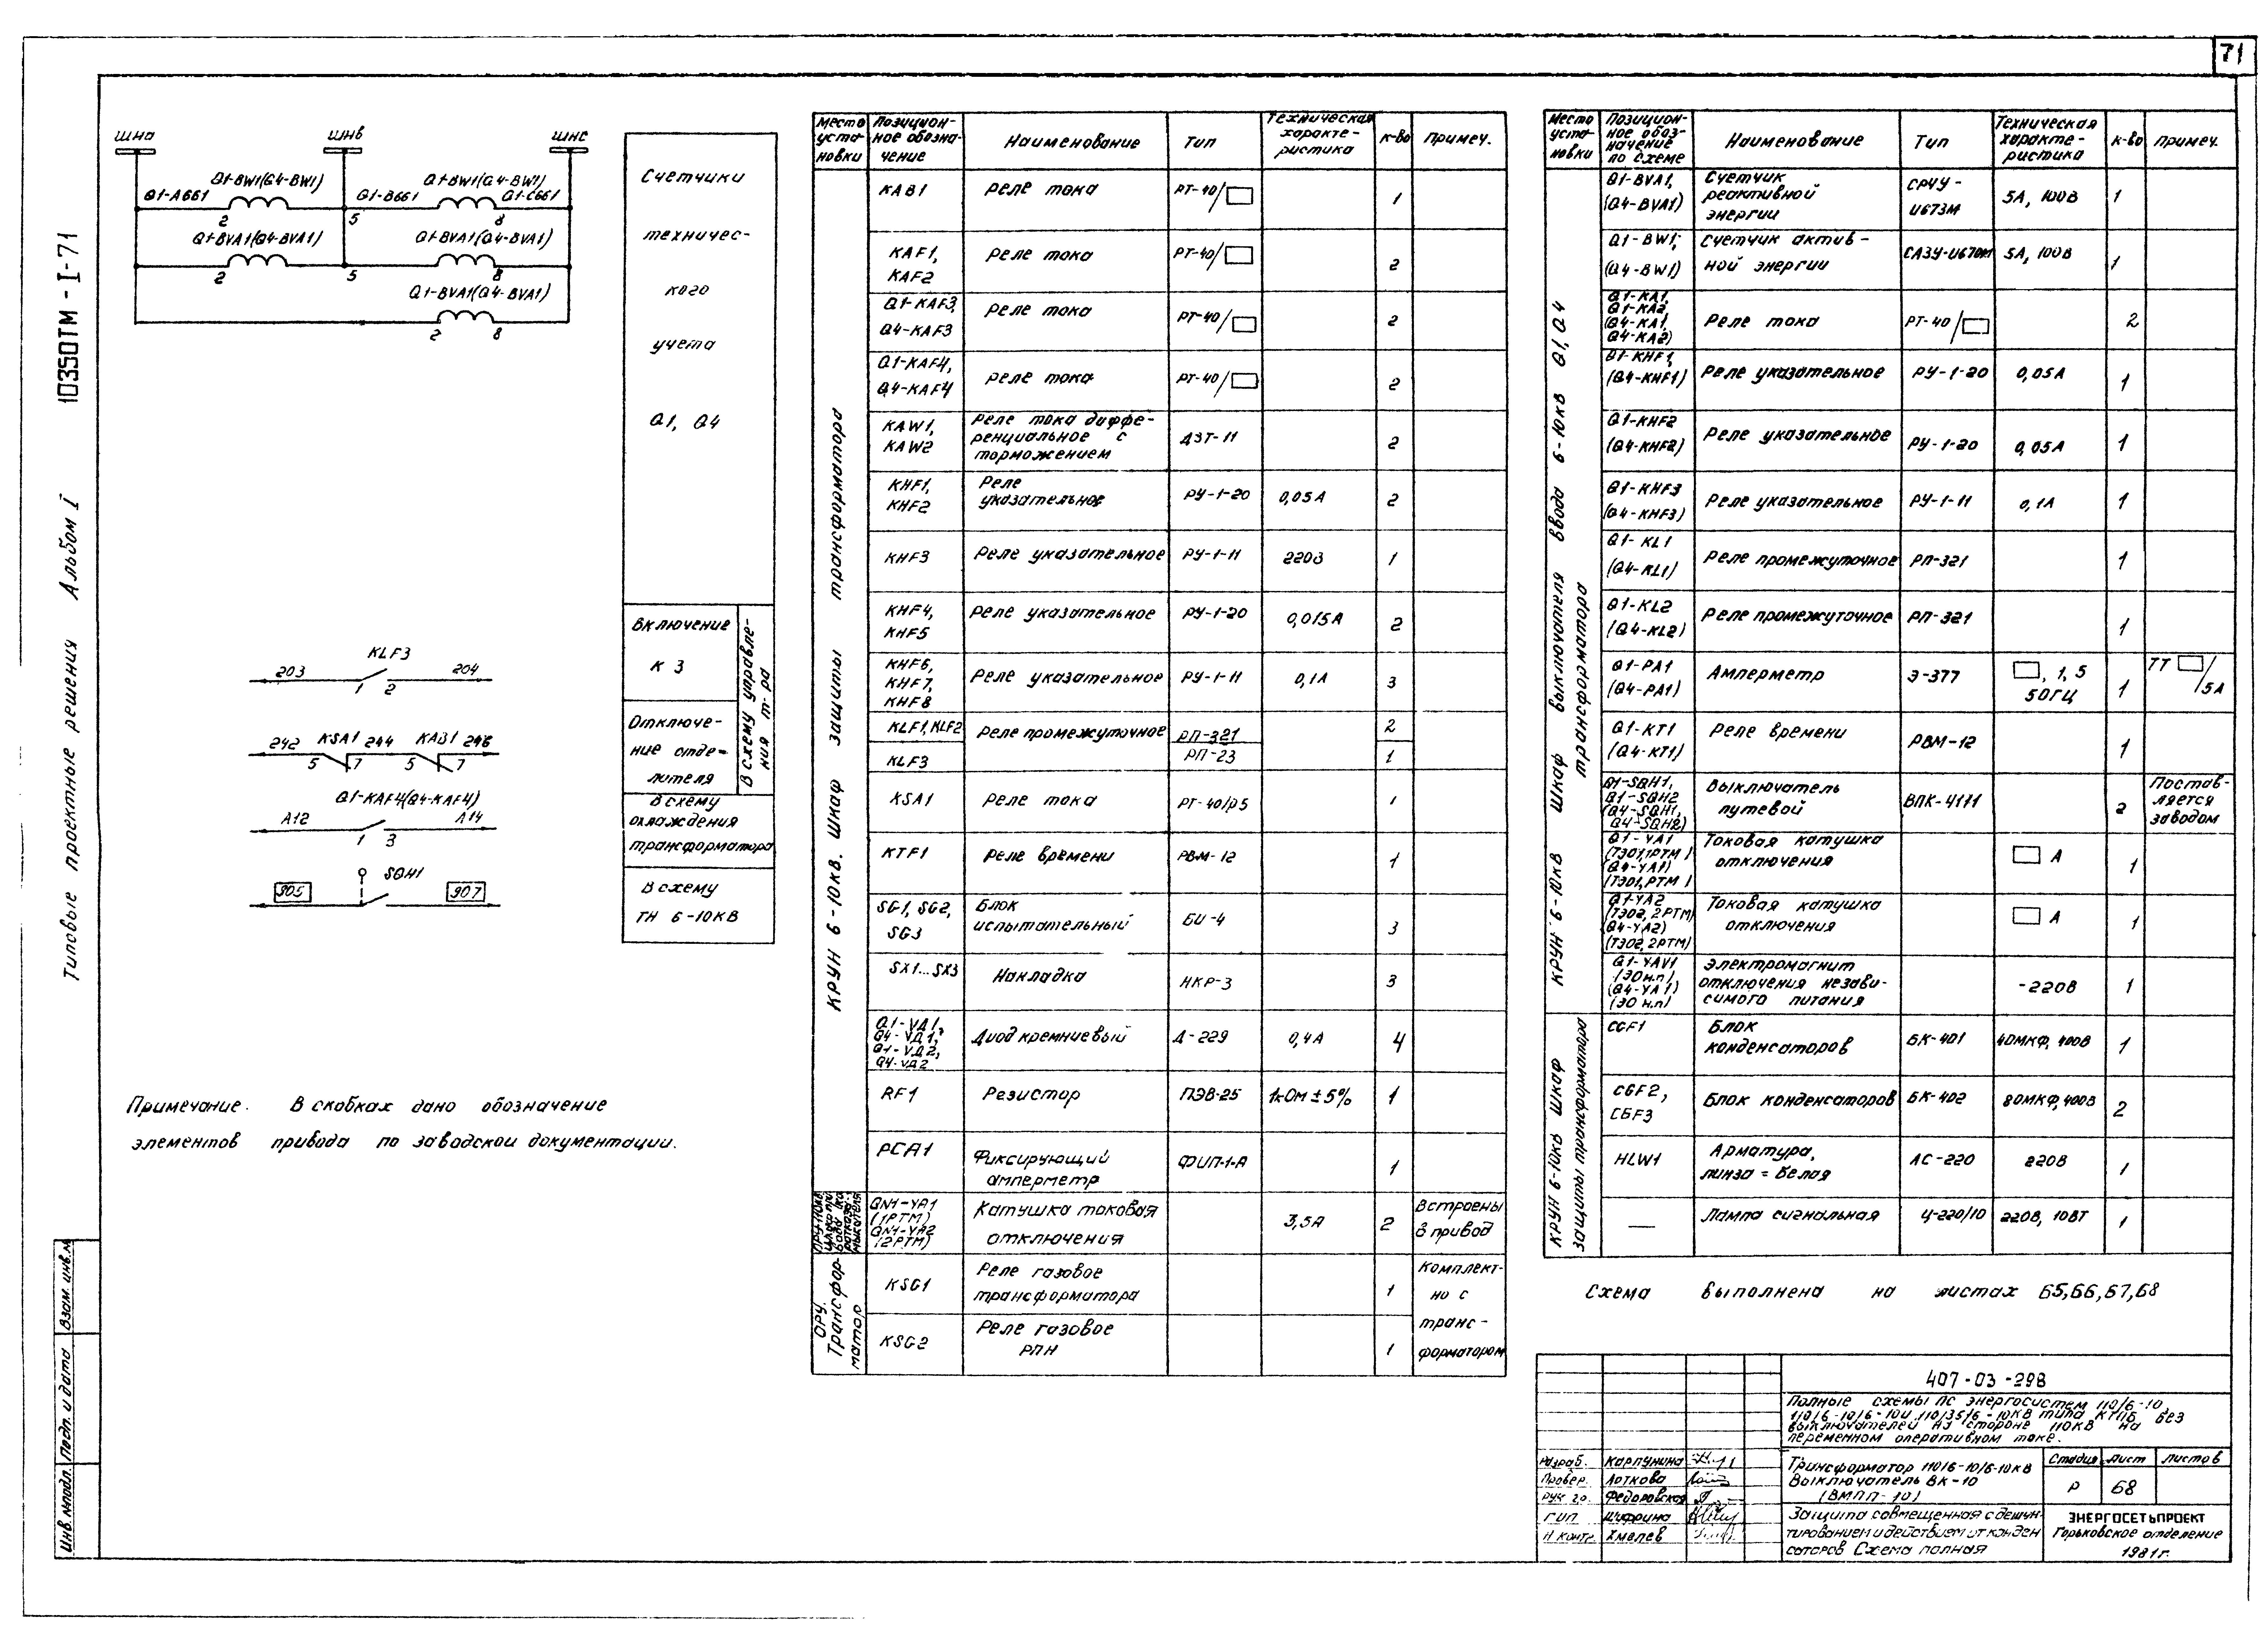 71
10350ТМ-I-71
Типовые проектные решения Альбом I
ШНа ШНв ШНс
Q1-BW1(Q4-BW1) Q1-BW1(Q4-BW1)
Q1-A661 Q1-B661 Q1-C661
2 5 8
Q1-BVA1(Q4-BVA1) Q1-BVA1(Q4-BVA1)
2 5 8
Q1-BVA1(Q4-BVA1)
2 8
Счетчики
техничес-
кого
учета
Q1, Q4
KLF3
203 204
1 2
Включение
К 3
242 KSA1 244 KAB1 246
5 7 5 7
Отключе-
ние отде-
лителя
В схему управле-
ния т-ра
Q1-KAF4(Q4-KAF4)
A12 A14
1 3
В схему
охлаждения
трансформатора
SQH1
905 907
В схему
ТН 6-10кВ
Примечание. В скобках дано обозначение
элементов привода по заводской документации.
Место уста-новки Позицион-ное обозна-чение Наименование Тип Техническая характе-ристика к-во Примеч.
КРУН 6-10кВ. Шкаф защиты трансформатора
KAB1 Реле тока РТ-40/ 1
KAF1, KAF2 Реле тока РТ-40/ 2
Q1-KAF3, Q4-KAF3 Реле тока РТ-40/ 2
Q1-KAF4, Q4-KAF4 Реле тока РТ-40/ 2
KAW1, KAW2 Реле тока диффе-ренциальное с торможением ДЗТ-11 2
KHF1, KHF2 Реле указательное РУ-1-20 0,05А 2
KHF3 Реле указательное РУ-1-11 220В 1
KHF4, KHF5 Реле указательное РУ-1-20 0,015А 2
KHF6, KHF7, KHF8 Реле указательное РУ-1-11 0,1А 3
KLF1, KLF2 Реле промежуточное РП-321 2
KLF3 РП-23 1
KSA1 Реле тока РТ-40/Р5 1
KTF1 Реле времени РВМ-12 1
SG1, SG2, SG3 Блок испытательный БИ-4 3
SX1...SX3 Накладка НКР-3 3
Q1-VД1, Q4-VД1, Q1-VД2, Q4-VД2 Диод кремниевый Д-229 0,4А 4
RF1 Резистор ПЭВ-25 1кОм±5% 1
PCA1 Фиксирующий амперметр ФИП-1-А 1
QN1-YA1 (1РТМ) QN1-YA2 (2РТМ) Катушка токовая отключения 3,5А 2 Встроены в привод
ОРУ. Трансфор-матор
KSG1 Реле газовое трансформатора 1 Комплект-но с транс-форматором
KSG2 Реле газовое РПН 1
Место уста-новки Позицион-ное обоз-начение по схеме Наименование Тип Техническая характе-ристика к-во Примеч.
КРУН 6-10кВ Шкаф выключателя ввода 6-10кВ Q1, Q4
трансформатора
Q1-BVA1, (Q4-BVA1) Счетчик реактивной энергии СРЧУ-И673М 5А, 100В 1
Q1-BW1; (Q4-BW1) Счетчик актив-ной энергии САЗУ-И670М 5А, 100В 1
Q1-KA1, Q1-KA2 (Q4-KA1, Q4-KA2) Реле тока РТ-40/ 2
Q1-KHF1, (Q4-KHF1) Реле указательное РУ-1-20 0,05А 1
Q1-KHF2 (Q4-KHF2) Реле указательное РУ-1-20 0,05А 1
Q1-KHF3 (Q4-KHF3) Реле указательное РУ-1-11 0,1А 1
Q1-KL1 (Q4-KL1) Реле промежуточное РП-321 1
Q1-KL2 (Q4-KL2) Реле промежуточное РП-321 1
Q1-PA1 (Q4-PA1) Амперметр Э-377 , 1,5 50ГЦ 1 ТТ /5А
Q1-KT1 (Q4-KT1) Реле времени РВМ-12 1
Q1-SQH1, Q1-SQH2 (Q4-SQH1, Q4-SQH2) Выключатель путевой ВПК-4111 2 Постав-ляется заводом
Q1-YA1 (ТЭО1,1РТМ) Q4-YA1) (ТЭО1,РТМ) Токовая катушка отключения А 1
Q1-YA2 (ТЭО2, 2РТМ) Q4-YA2) (ТЭО2, 2РТМ) Токовая катушка отключения А 1
Q1-YAV1 (ЭО н.п) (Q4-YA1) (ЭО н.п) Электромагнит отключения незави-симого питания -220В 1
КРУН 6-10кВ Шкаф защиты трансформатора
CGF1 Блок конденсаторов БК-401 40МКФ, 400В 1
CGF2, CGF3 Блок конденсаторов БК-402 80МКФ, 400В 2
HLW1 Арматура, линза = белая АС-220 220В 1
— Лампа сигнальная Ц-220/10 220В, 10ВТ 1
Схема выполнена на листах 65,66,67,68
407-03-298
Полные схемы ПС энергосистем 110/6-10,
110/6-10/6-10и 110/35/6-10кВ типа КТПБ без
выключателей на стороне 110кВ на
переменном оперативном токе.
Разраб. Карпунина
Провер. Лоткова
Рук гр. Федоровская
ГИП Шифрина
Н контр. Хмелев
Трансформатор 110/6-10/6-10кВ
Выключатель ВК-10
(ВМПП-10)
Стадия Лист Листов
Р 68
Защита совмещенная с дешун-
тированием и действием от конден
саторов Схема полная
ЭНЕРГОСЕТЬПРОЕКТ
Горьковское отделение
1981г.
Инв. №подл. Подп. и дата Взам. инв.№